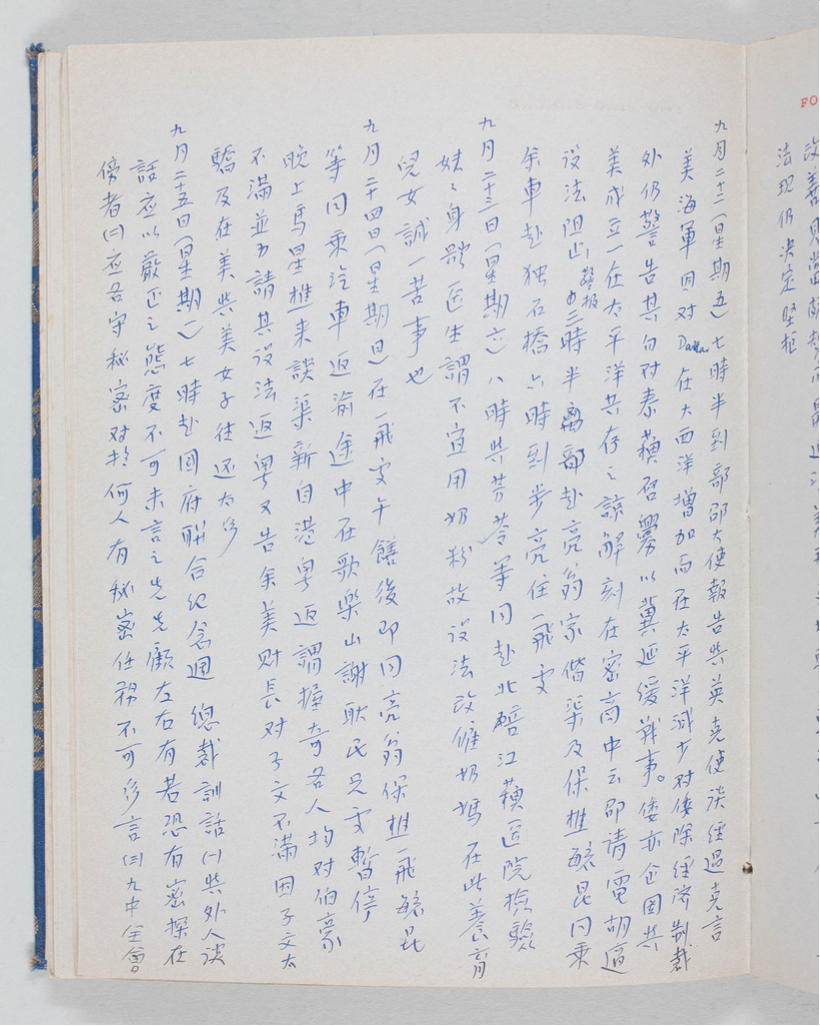 九月二十二(星期五)七時半到部邵大使報告與英克使談經過克言
美海軍因对 Dakar 在大西洋增加而在太平洋減少对倭除經濟制裁
外仍警告其勿对泰蘇召釁以冀延緩戰事。倭亦企圖與
美成立一在太平洋共存之諒解刻在密商中云邵请電胡適
设法阻止 警报 由三時半離部赴亮翁家偕渠及保樵毓昆同乘
余車赴独石橋六時到步亮住一飛雯
九月二十三日(星期六)八時與芬苓等同赴北碚江蘇医院檢驗
妹之身體医生謂不宜用奶粉故设法改僱奶媽在此養育
兒女誠一苦事也
九月二十四日(星期日)在一飛雯午饍後即同亮翁保樵一飛毓昆
等同乘汽車返渝途中在歌樂山謝耿民兄雯暫停
晚上馬星樵来談渠新自港粤返謂握奇各人均对伯豪
不滿並力請其设法返粤又告余美财長对子文不滿因子文太
驕及在美與美女子往还太多
九月二十五日(星期一)七時赴國府联合纪念週 總裁訓話(一)與外人谈
話应以嚴正之態度不可未言之先先顧左右有若恐有密探在
傍者(二)应各守秘密对於何人有秘密任務不可多言(三)九中全會
FO
法現仍决定坚拒